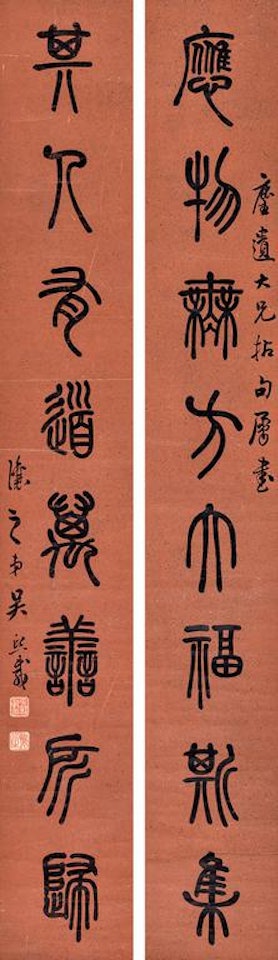 塵遺大兄拈句屬書
應物無方大福斯集
其人有道萬善所歸
讓之弟吳熙載